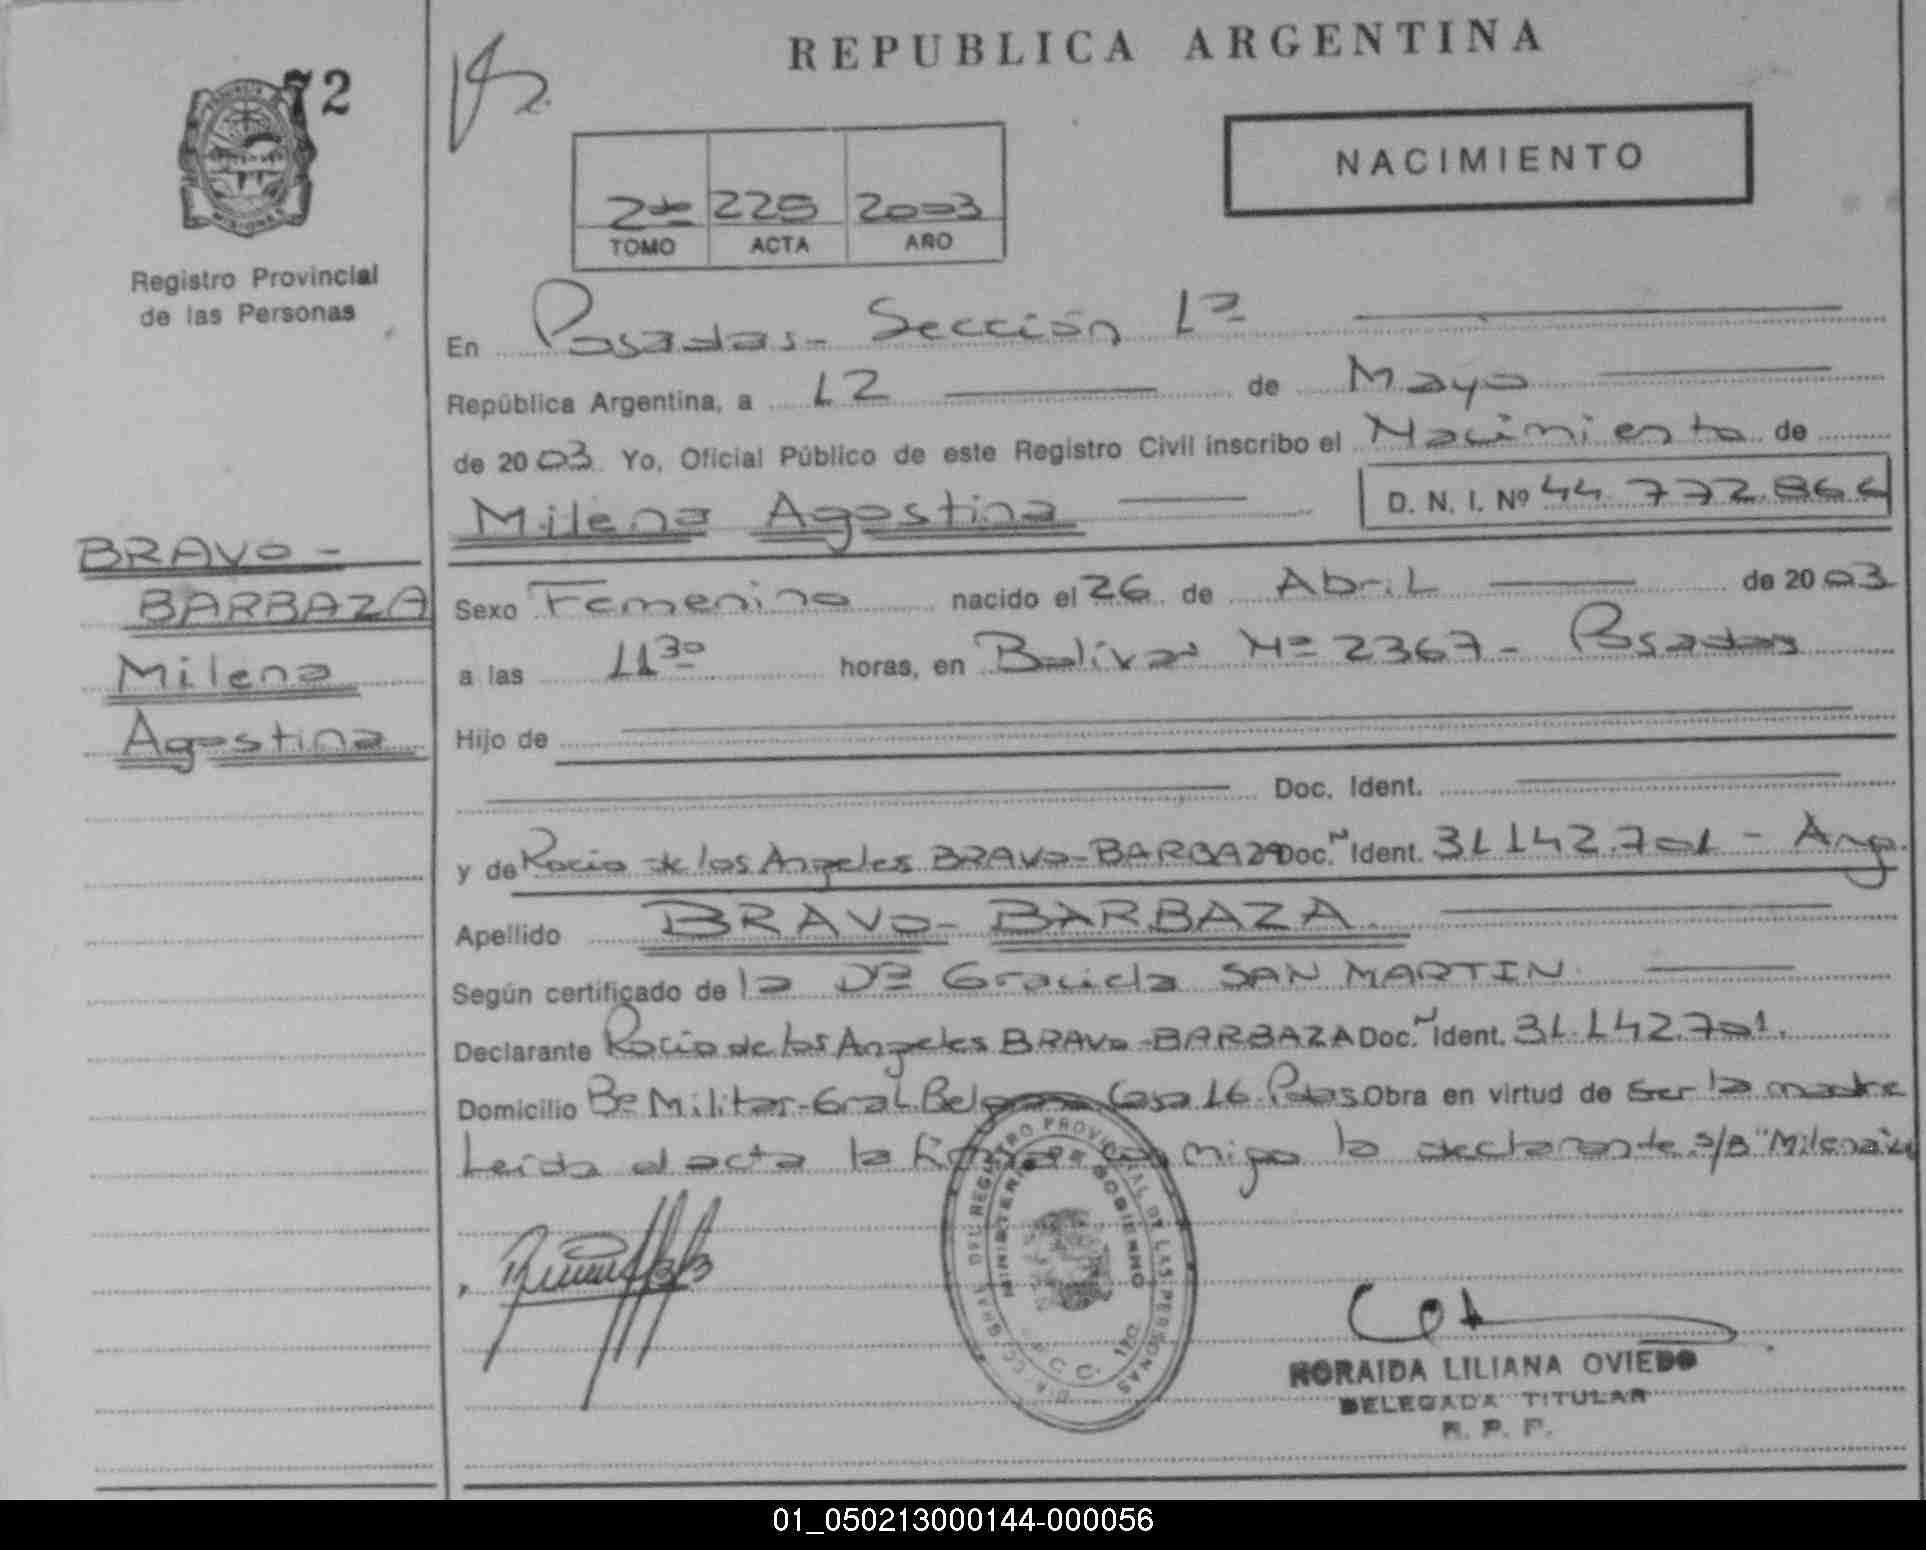 REPUBLICA ARGENTINA
72
NACIMIENTO
2do 225 2003
TOMO ACTA AÑO
Registro Provincial
de las Personas
En Posadas - Sección 1ª
República Argentina, a 12 de Mayo
de 2003. Yo, Oficial Público de este Registro Civil inscribo el Nacimiento de
Milena Agostina D. N. I. Nº 44.772.866
BRAVO -
BARBAZA
Milena
Agostina
Sexo Femenino nacido el 26 de Abril de 2003
a las 11 30 horas, en Bolivar Nº 2367 - Posadas
Hijo de
Doc. Ident.
y de Rocio de los Angeles BRAVO - BARBAZA Doc. Ident. 31.142.701 - Arg.
Apellido BRAVO - BARBAZA.
Según certificado de la Dra Graciela SAN MARTIN
Declarante Rocio de los Angeles BRAVO - BARBAZA Doc. Ident. 31.142.701.
Domicilio Bº Militar - Gral Belgrano Casa 16 - Pdas Obra en virtud de ser la madre
Leida el acta la firma con migo la declarante. s/B "Milena"
DEL REGISTRO PROVINCIAL DE LAS PERSONAS
MINISTERIO DE GOBIERNO
NORAIDA LILIANA OVIEDO
DELEGADA TITULAR
R. P. P.
01_050213000144-000056